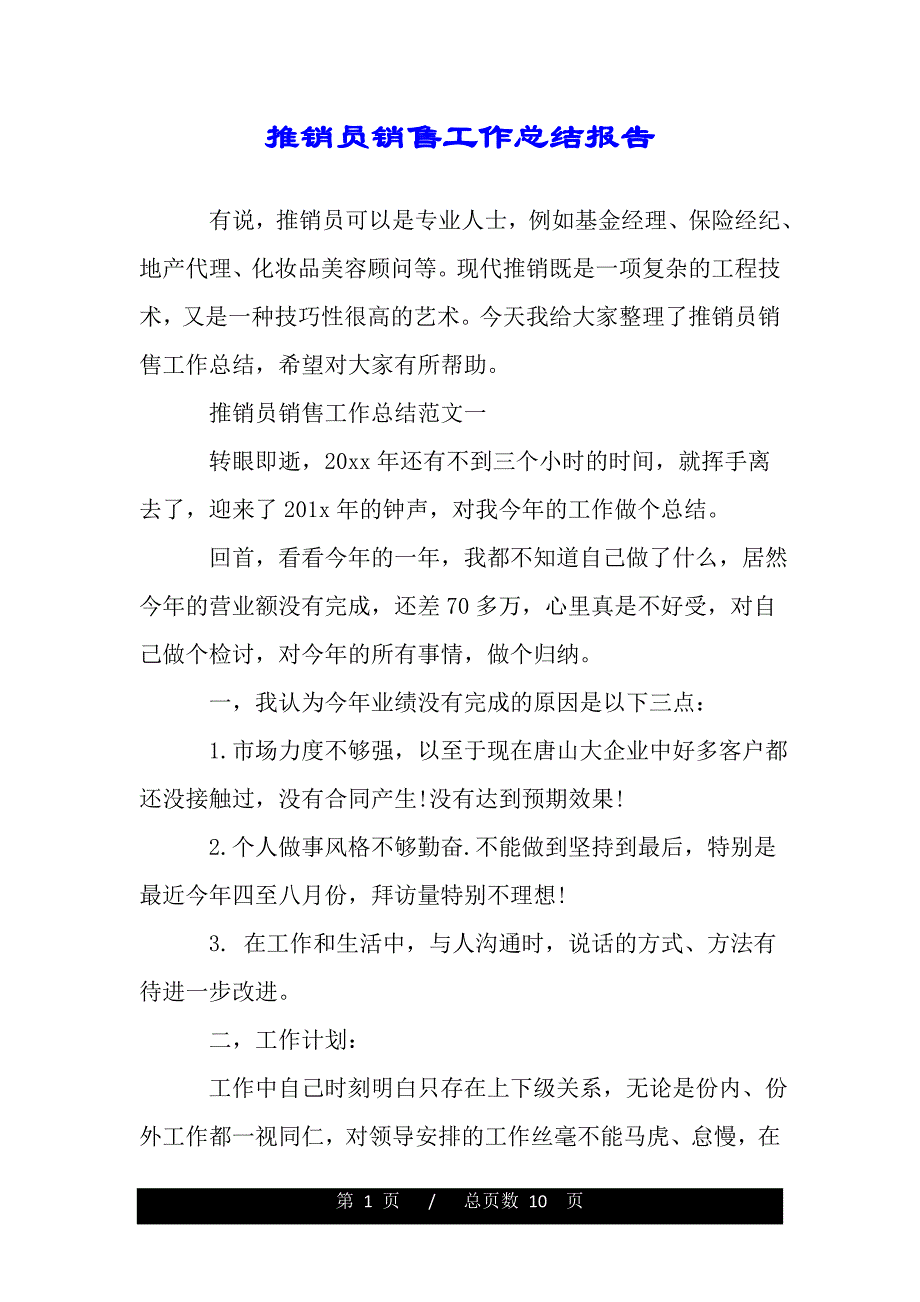 推销员销售工作总结报告
有说，推销员可以是专业人士，例如基金经理、保险经纪、
地产代理、化妆品美容顾问等。现代推销既是一项复杂的工程技
术，又是一种技巧性很高的艺术。今天我给大家整理了推销员销
售工作总结，希望对大家有所帮助。
推销员销售工作总结范文一
转眼即逝，20xx 年还有不到三个小时的时间，就挥手离
去了，迎来了 201x 年的钟声，对我今年的工作做个总结。
回首，看看今年的一年，我都不知道自己做了什么，居然
今年的营业额没有完成，还差 70 多万，心里真是不好受，对自
己做个检讨，对今年的所有事情，做个归纳。
一，我认为今年业绩没有完成的原因是以下三点：
1.市场力度不够强，以至于现在唐山大企业中好多客户都
还没接触过，没有合同产生!没有达到预期效果!
2.个人做事风格不够勤奋.不能做到坚持到最后，特别是
最近今年四至八月份，拜访量特别不理想!
3. 在工作和生活中，与人沟通时，说话的方式、方法有
待进一步改进。
二，工作计划：
工作中自己时刻明白只存在上下级关系，无论是份内、份
外工作都一视同仁，对领导安排的工作丝毫不能马虎、怠慢，在
第 1 页 / 总页数 10 页